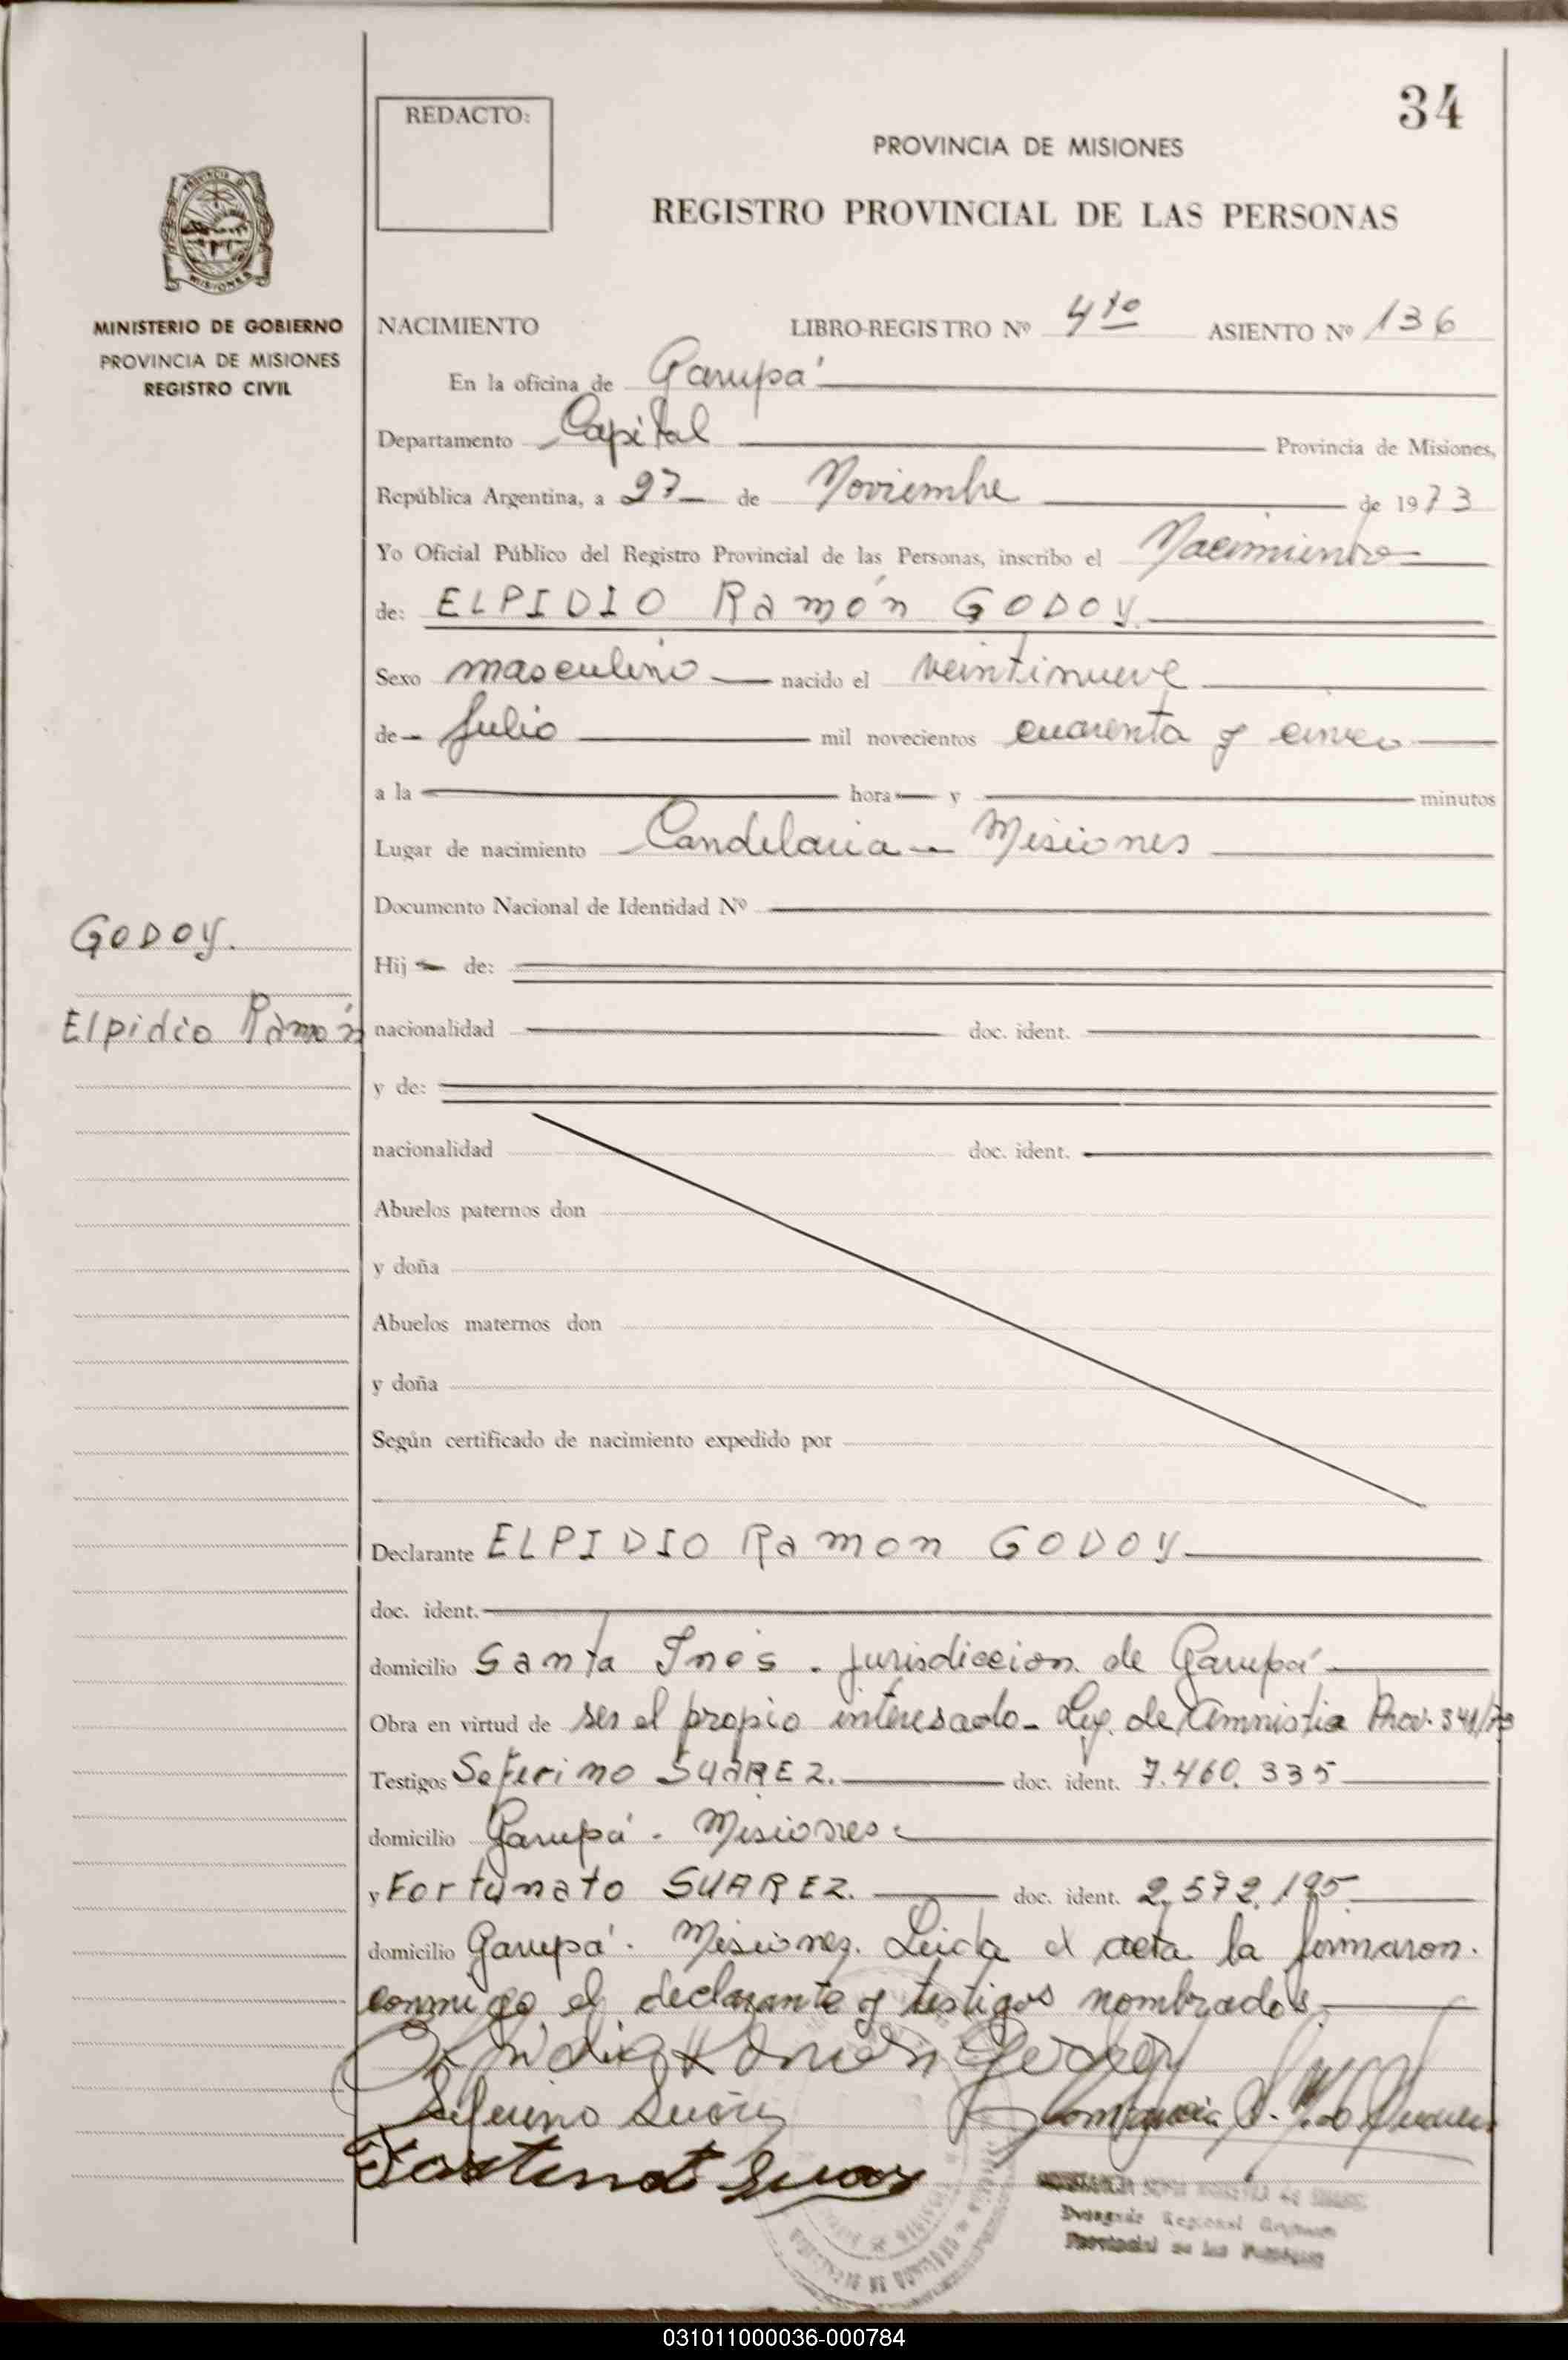 34
REDACTO:
PROVINCIA DE MISIONES
REGISTRO PROVINCIAL DE LAS PERSONAS
PROVINCIA DE
MISIONES
MINISTERIO DE GOBIERNO
PROVINCIA DE MISIONES
REGISTRO CIVIL
NACIMIENTO LIBRO-REGISTRO Nº 4to ASIENTO Nº 136
En la oficina de Garupá
Departamento Capital Provincia de Misiones,
República Argentina, a 27 de Noviembre de 1973
Yo Oficial Público del Registro Provincial de las Personas, inscribo el Nacimiento
de: ELPIDIO Ramón GODOY
Sexo masculino nacido el veintinueve
de Julio mil novecientos cuarenta y cinco
a la hora y minutos
Lugar de nacimiento Candelaria - Misiones
Documento Nacional de Identidad Nº
GODOY.
Hij de:
Elpidio Ramón
nacionalidad doc. ident.
y de:
nacionalidad doc. ident.
Abuelos paternos don
y doña
Abuelos maternos don
y doña
Según certificado de nacimiento expedido por
Declarante ELPIDIO Ramon GODOY
doc. ident.
domicilio Santa Inés. jurisdiccion de Garupá
Obra en virtud de ser el propio interesado - Ley de Amnistia Prov. 341/73
Testigos Seferino SUAREZ. doc. ident. 7.460.335
domicilio Garupá - Misiones
y Fortunato SUAREZ. doc. ident. 2.572.195
domicilio Garupá. Misiones. Leida el acta la firmaron.
conmigo el declarante y testigos nombrados
Elpidio Ramón Godoy
Seferino Suarez
Delegado Regional
Provincial de las Personas
031011000036-000784